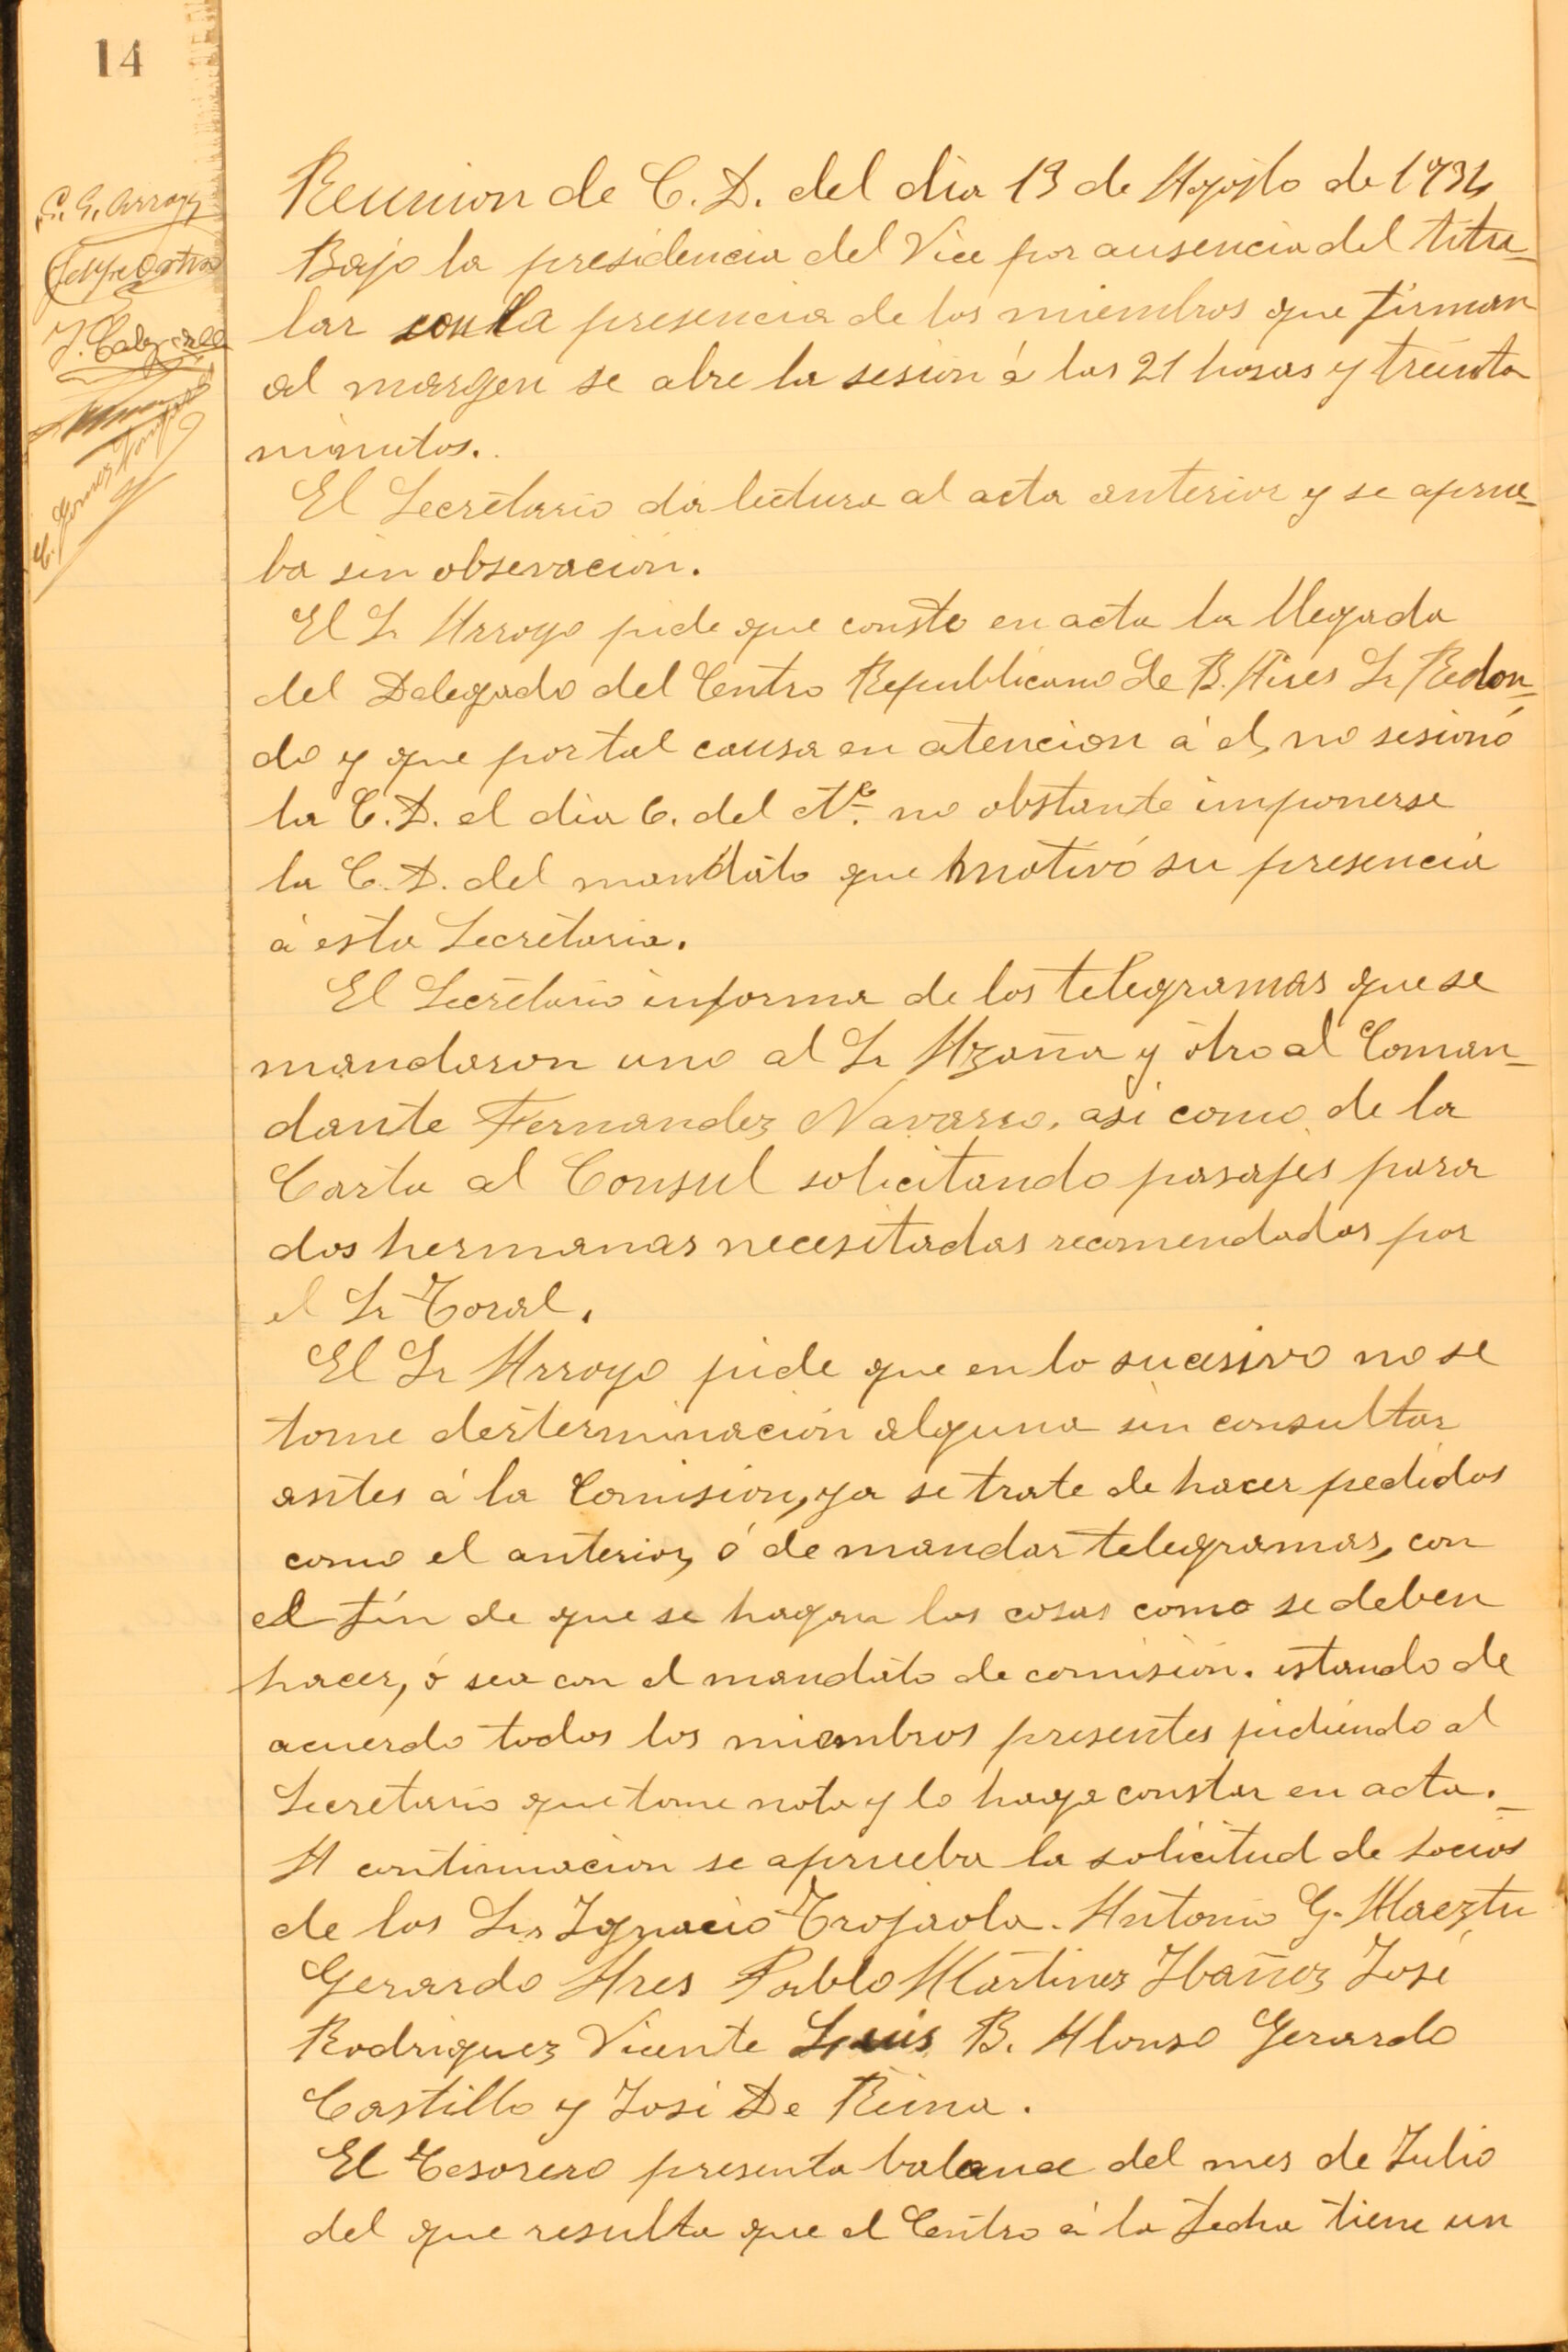 14
C. G. Arroyo
Reunion de C. D. del dia 13 de Agosto de 1934
Bajo la presidencia del Vice por ausencia del titu-
lar con la presencia de los miembros que firman
al margen se abre la sesión á las 21 horas y treinta
minutos.
El Secretario da lectura al acta anterior y se aprue-
ba sin observación.
El Sr Arroyo pide que conste en acta la llegada
del Delegado del Centro Republicano de B. Aires Sr Redon-
do y que por tal causa en atencion á el, no sesionó
la C. D. el dia 6. del cte. no obstante imponerse
la C. D. del mandato que motivó su presencia
á esta Secretaria.
El Secretario informa de los telegramas que se
mandaron uno al Sr Azaña y otro al Coman-
dante Fernandez Navarro, asi como de la
Carta al Consul solicitando pasajes para
dos hermanas necesitadas recomendadas por
el Sr Toral.
El Sr Arroyo pide que en lo sucesivo no se
tome desterminación alguna sin consultar
antes á la Comision, ya se trate de hacer pedidos
como el anterior, ó de mandar telegramas, con
el fín de que se hagan las cosas como se deben
hacer, ó sea con el mandato de comisión. estando de
acuerdo todos los miembros presentes pidiendo al
Secretario que tome nota y lo haga constar en acta.-
A continuacion se aprueba la solicitud de socios
de los Srs Ignacio Trojaola. Antonio G. Maeztu
Gerardo Ares Pablo Martinez Ibañez José
Rodriguez Vicente Luis B. Alonso Gerardo
Castillo y José De Reina.
El Tesorero presenta balance del mes de Julio
del que resulta que el Centro á la fecha tiene un